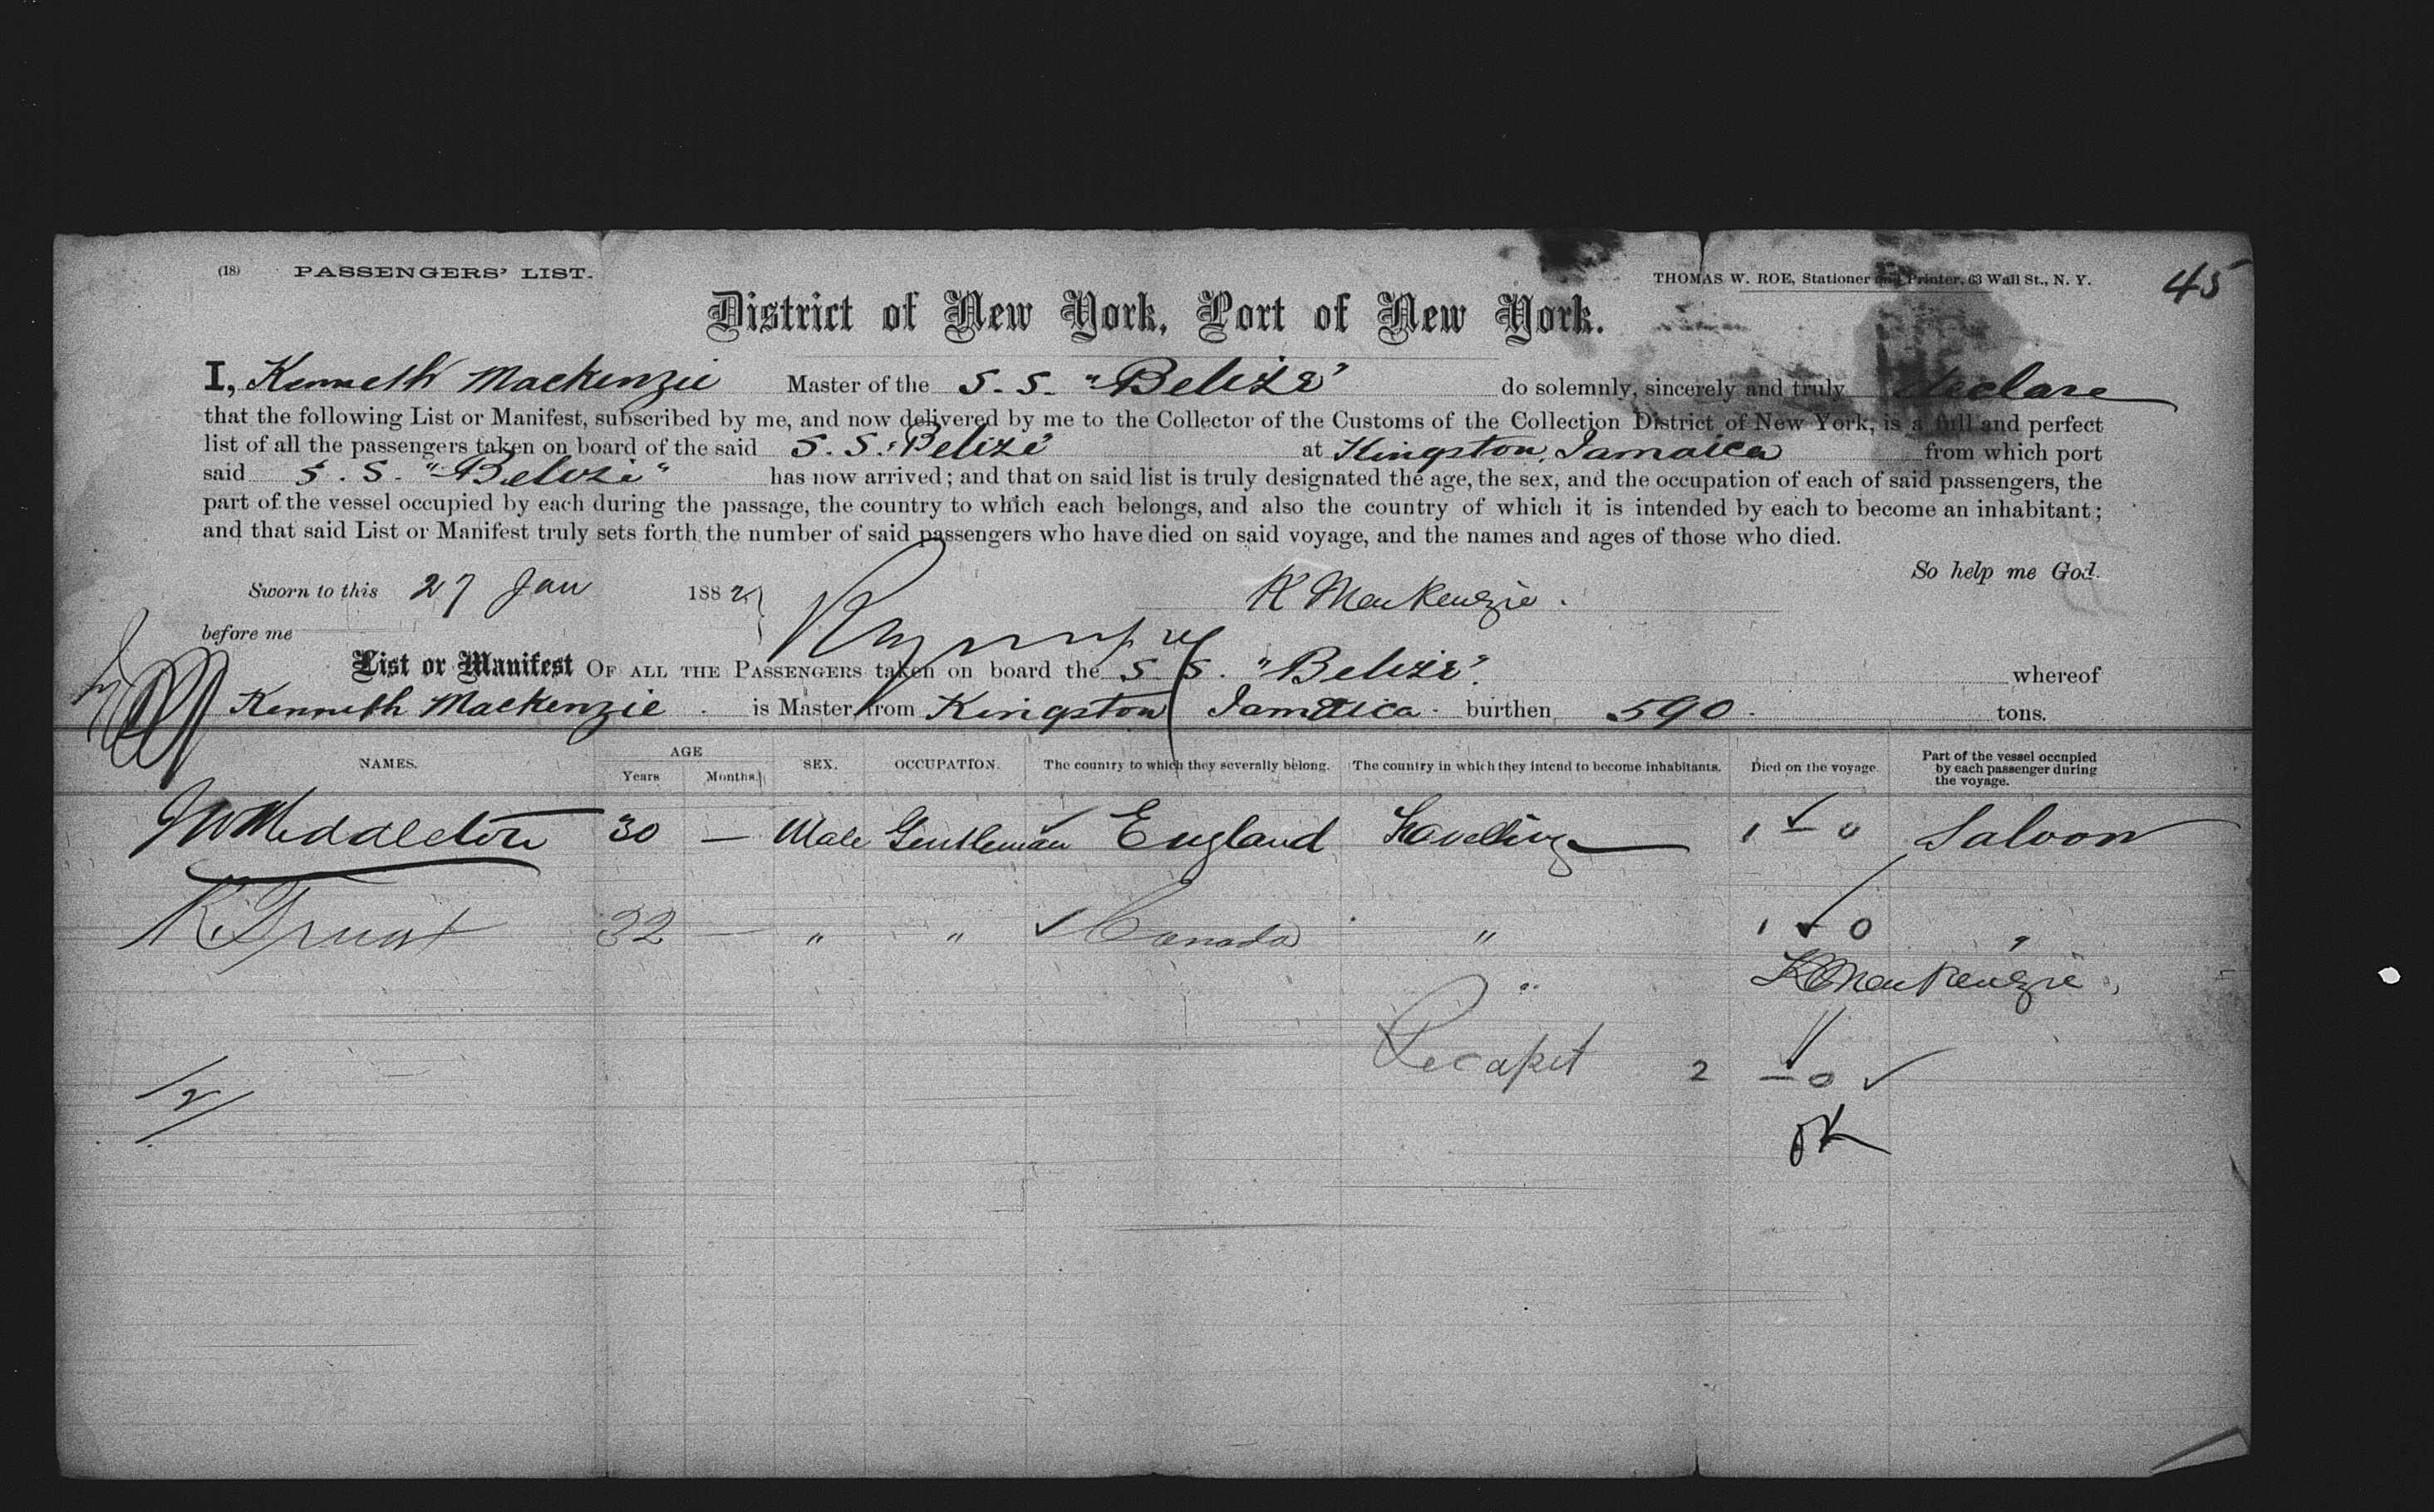 (18) PASSENGERS' LIST.
THOMAS W. ROE, Stationer and Printer, 63 Wall St., N. Y.
45
District of New York, Port of New York.
I, Kenneth Mackenzie Master of the S. S. "Belize" do solemnly, sincerely and truly declare
that the following List or Manifest, subscribed by me, and now delivered by me to the Collector of the Customs of the Collection District of New York, is a full and perfect
list of all the passengers taken on board of the said S. S. "Belize" at Kingston, Jamaica from which port
said S. S. "Belize" has now arrived; and that on said list is truly designated the age, the sex, and the occupation of each of said passengers, the
part of the vessel occupied by each during the passage, the country to which each belongs, and also the country of which it is intended by each to become an inhabitant;
and that said List or Manifest truly sets forth the number of said passengers who have died on said voyage, and the names and ages of those who died.
So help me God.
Sworn to this 27 Jan 1882 K Mackenzie.
before me
List or Manifest OF ALL THE PASSENGERS taken on board the S. S. "Belize" whereof
Kenneth Mackenzie. is Master, from Kingston Jamaica. burthen 590. tons.
NAMES. AGE Years Months. SEX. OCCUPATION. The country to which they severally belong. The country in which they intend to become inhabitants. Died on the voyage Part of the vessel occupied by each passenger during the voyage.
Middleton 30 — Male Gentleman ✓ England Travelling 1 — 0 Saloon
K. 32 — " " ✓ Canada " 1 - 0 "
K Mackenzie
2 — 0 ✓
2
OK